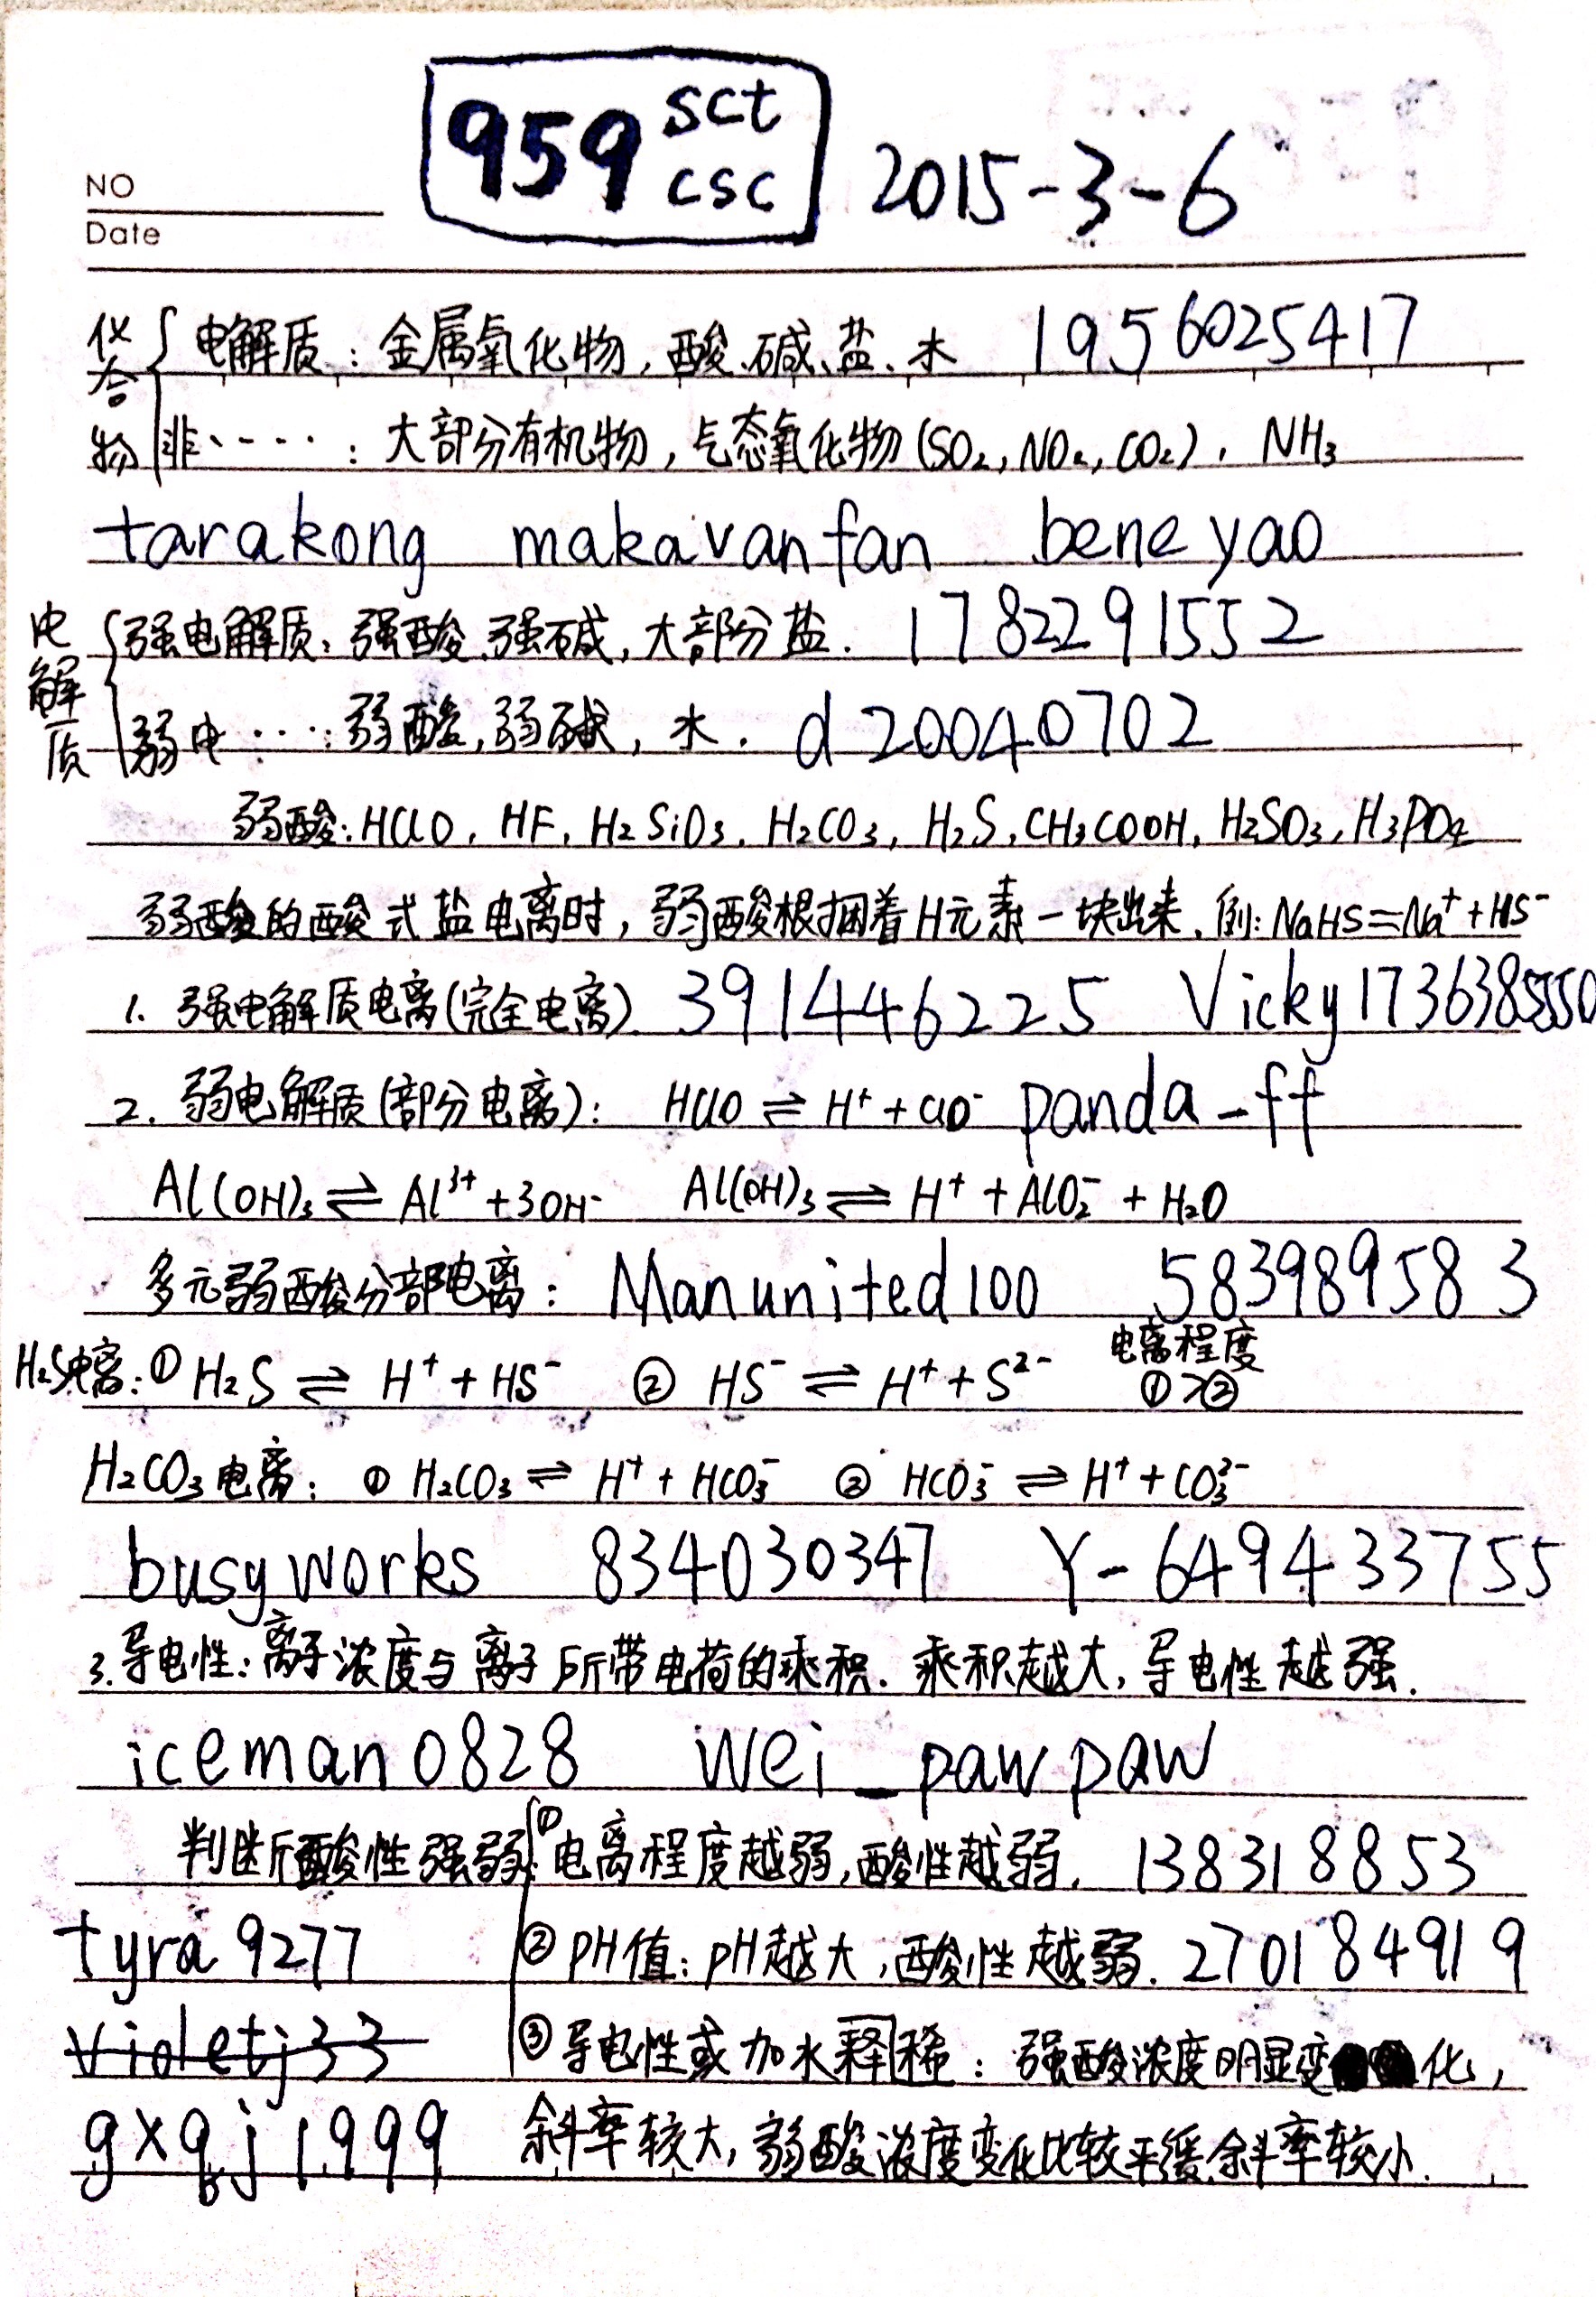 959 sct csc 2015-3-6
NO
Date
化合物 电解质：金属氧化物，酸、碱、盐、水 1956025417
非·····：大部分有机物，气态氧化物(SO₂,NO₂,CO₂)，NH₃
tarakong makavanfan beneyao
电解质 强电解质：强酸、强碱，大部分盐. 1782291552
弱电····：弱酸，弱碱，水. d20040702
弱酸：HClO, HF, H₂SiO₃, H₂CO₃, H₂S, CH₃COOH, H₂SO₃, H₃PO₄
弱酸的酸式盐电离时，弱酸根捆着H元素一块出来. 例：NaHS=Na⁺+HS⁻
1. 强电解质电离(完全电离) 391446225 Vicky1736385550
2. 弱电解质(部分电离)： HClO ⇌ H⁺+ClO⁻ panda-ff
Al(OH)₃ ⇌ Al³⁺+3OH⁻ Al(OH)₃ ⇌ H⁺+AlO₂⁻+H₂O
多元弱酸分部电离： Manunited100 583989583
H₂S电离：① H₂S ⇌ H⁺+HS⁻ ② HS⁻ ⇌ H⁺+S²⁻ 电离程度 ①>②
H₂CO₃电离：① H₂CO₃ ⇌ H⁺+HCO₃⁻ ② HCO₃⁻ ⇌ H⁺+CO₃²⁻
busyworks 834030347 Y-649433755
3.导电性：离子浓度与离子所带电荷的乘积. 乘积越大，导电性越强.
iceman0828 wei_pawpaw
判断酸性强弱：①电离程度越弱，酸性越弱. 138318853
tyra9277 ②PH值：pH越大，酸性越弱. 270184919
violetj33 ③导电性或加水释稀：强酸浓度明显变化，
gxqj1999 斜率较大，弱酸浓度变化比较平缓斜率较小.